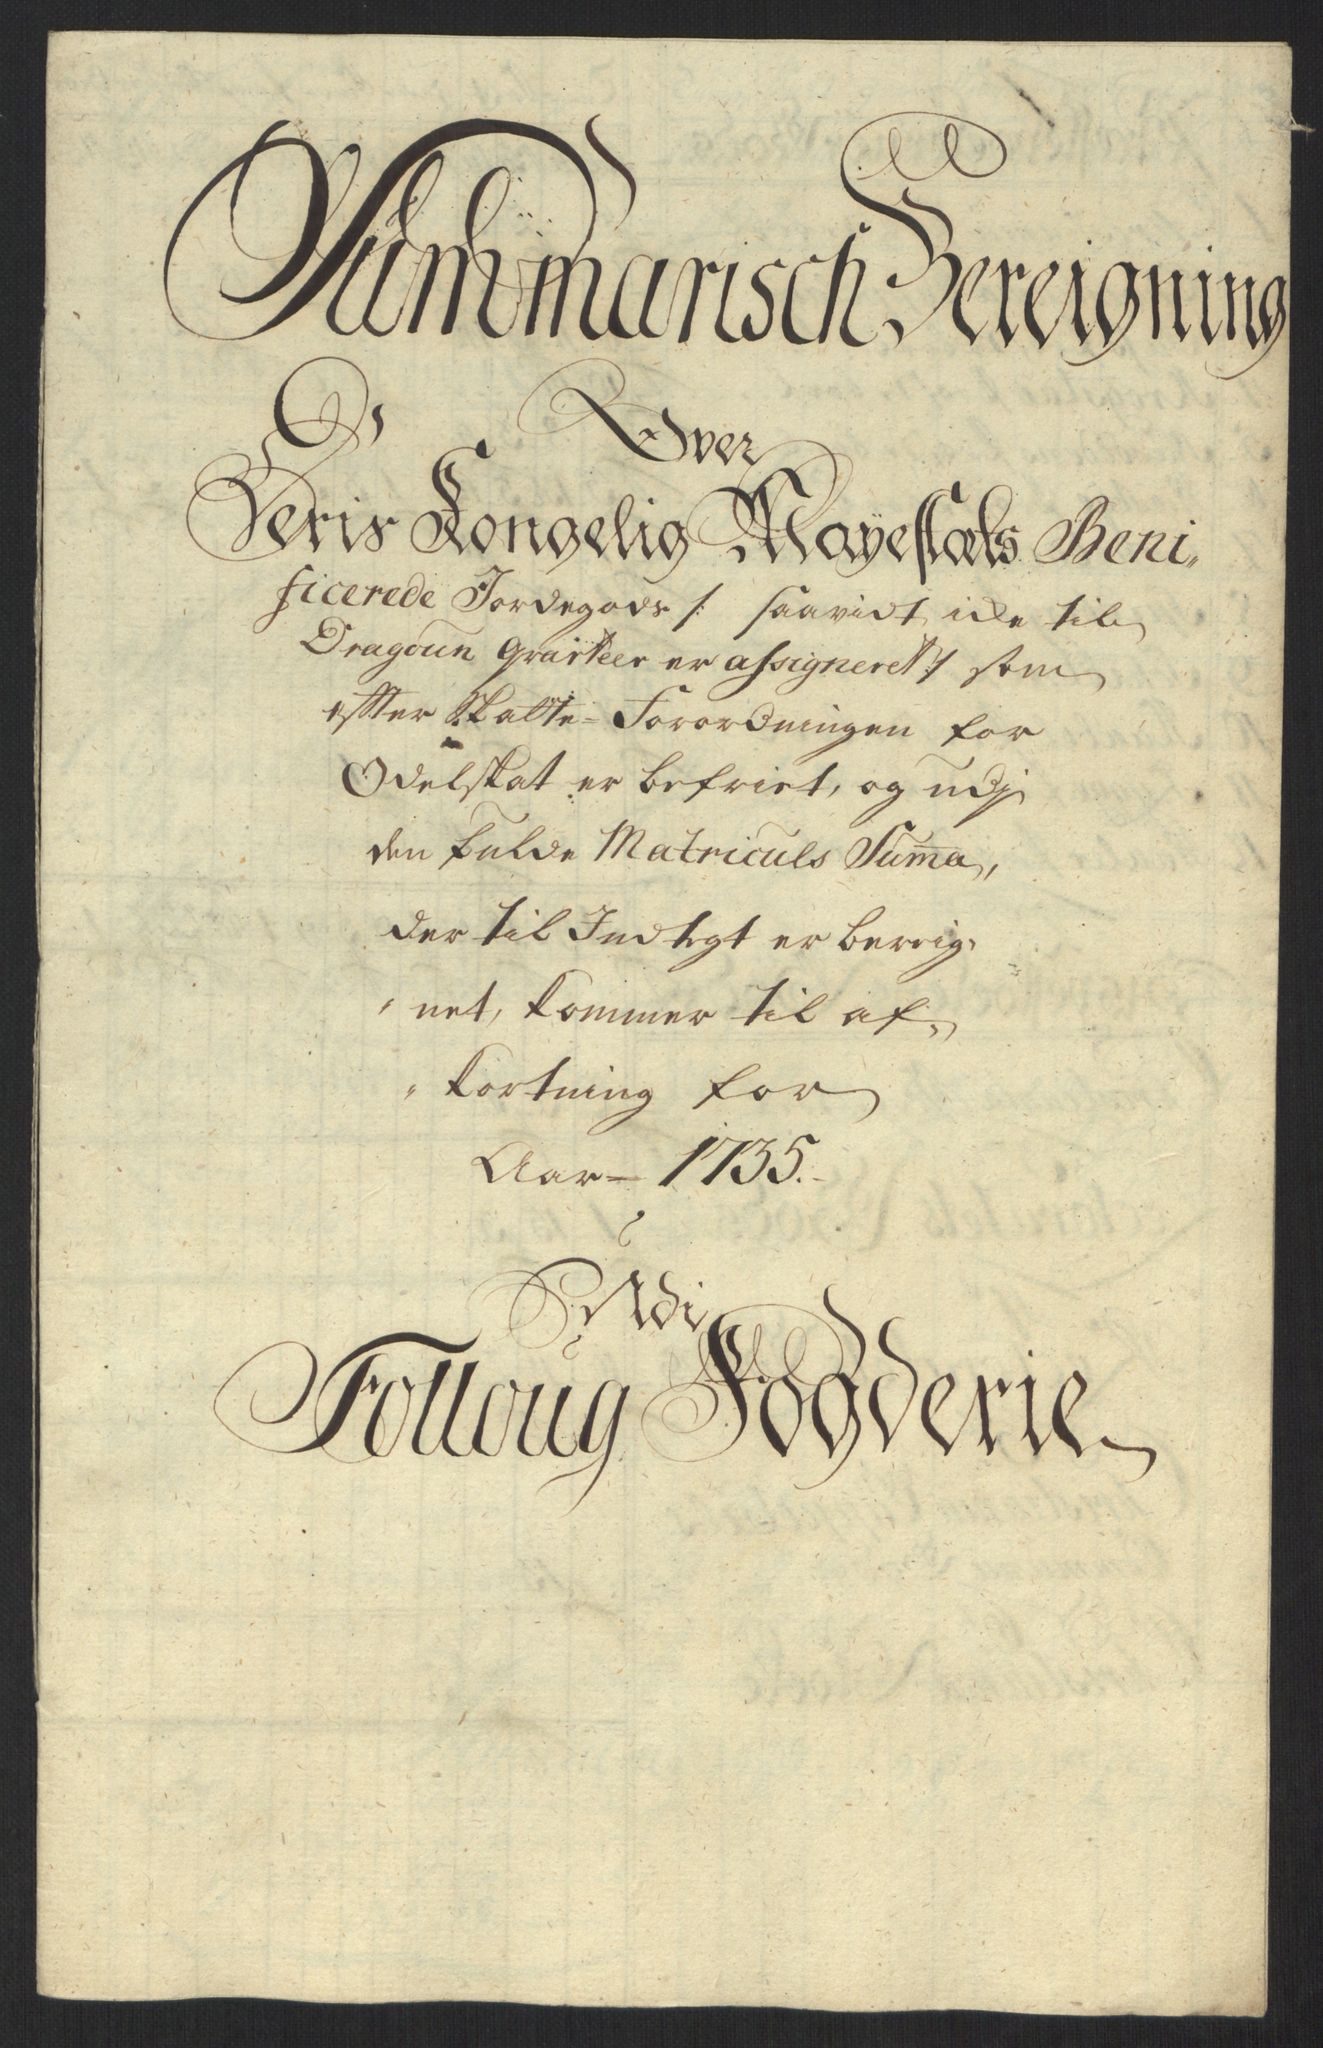 Summarisch Bereigning
Over
Deris Kongelig Mayestæts Beni-
ficerede Jordegods /: saavidt icke til
Dragoun Qvarteer er assigneret :/ som
effter Skatte-Forordningen for
Odelskat er befriet, og udj
den fulde Matriculs Summa,
der til Indtegt er bereig-
net, kommer til af-
kortning for
Aar 1735.
Udi
Folloug Fogderie